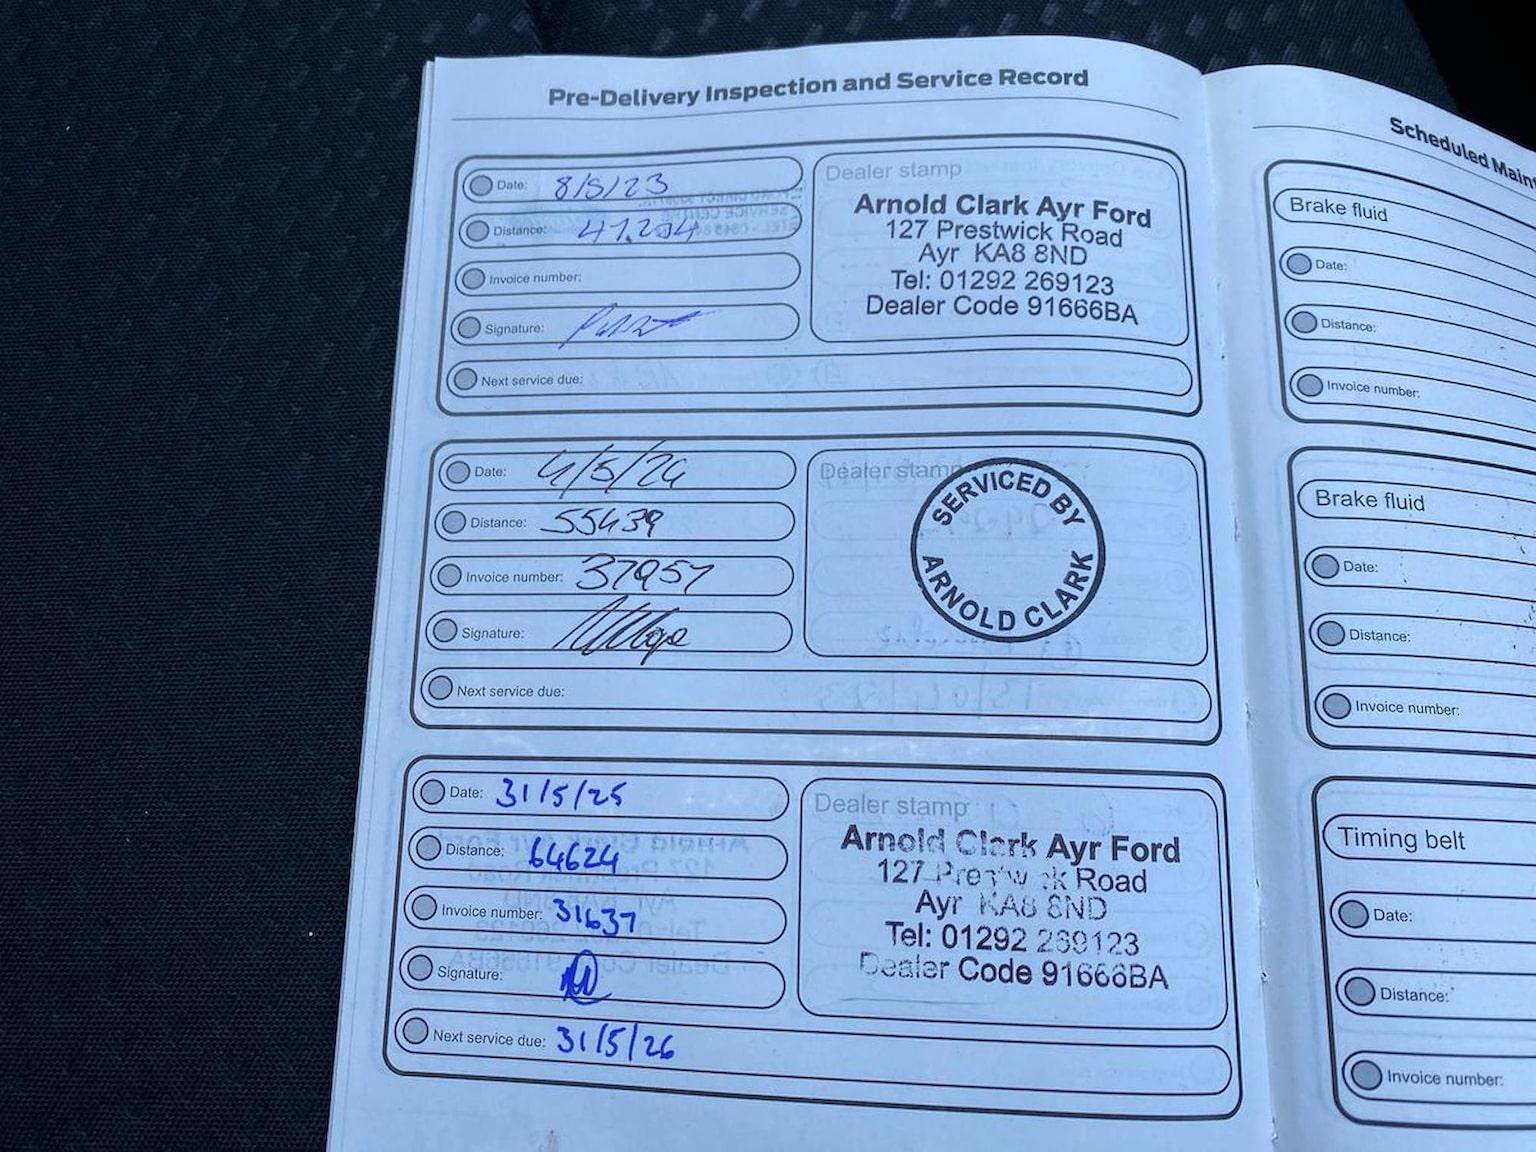 Pre-Delivery Inspection and Service Record
Date: 8/5/23
Distance: 47.204
Invoice number:
Signature:
Next service due:
Dealer stamp
Arnold Clark Ayr Ford
127 Prestwick Road
Ayr KA8 8ND
Tel: 01292 269123
Dealer Code 91666BA
Date: 4/5/24
Distance: 55439
Invoice number: 37957
Signature:
Next service due:
Dealer stamp
SERVICED BY
ARNOLD CLARK
Date: 31/5/25
Distance: 64624
Invoice number: 31637
Signature:
Next service due: 31/5/26
Dealer stamp
Arnold Clark Ayr Ford
127 Prestwick Road
Ayr KA8 8ND
Tel: 01292 269123
Dealer Code 91666BA
Scheduled
Brake fluid
Date:
Distance:
Invoice number:
Brake fluid
Date:
Distance:
Invoice number:
Timing belt
Date:
Distance:
Invoice number: